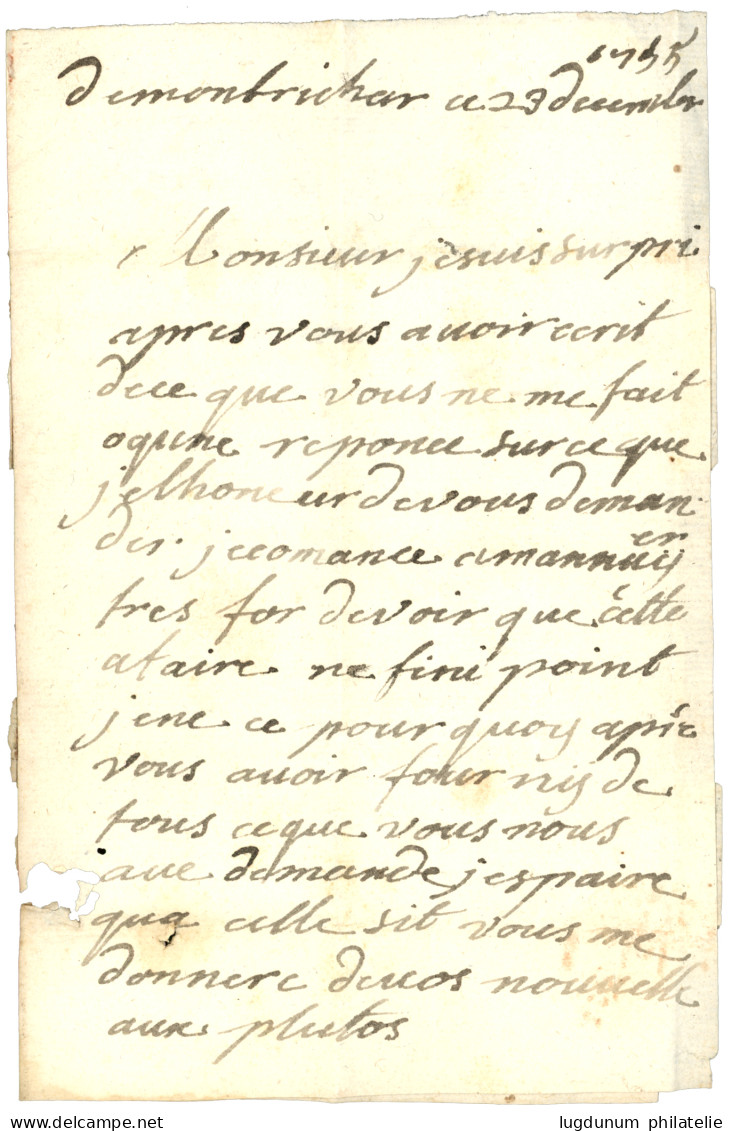 1755
demonbrichar ce 23 decembre
Monsieur je suis surpri
apres vous auoir ecrit
dece que vous ne me fait
oqune reponce sur ce que
jelhoneur de vous deman
der. je comance amannuyer
tres for de voir que cette
afaire ne fini point
jene ce pour quoy apres
vous auoir fournis de
tous ce que vous nous
aue demande jespaire
qua celle sit vous me
donnere deuos nouuelle
aux plutos
lugdunum philatelie